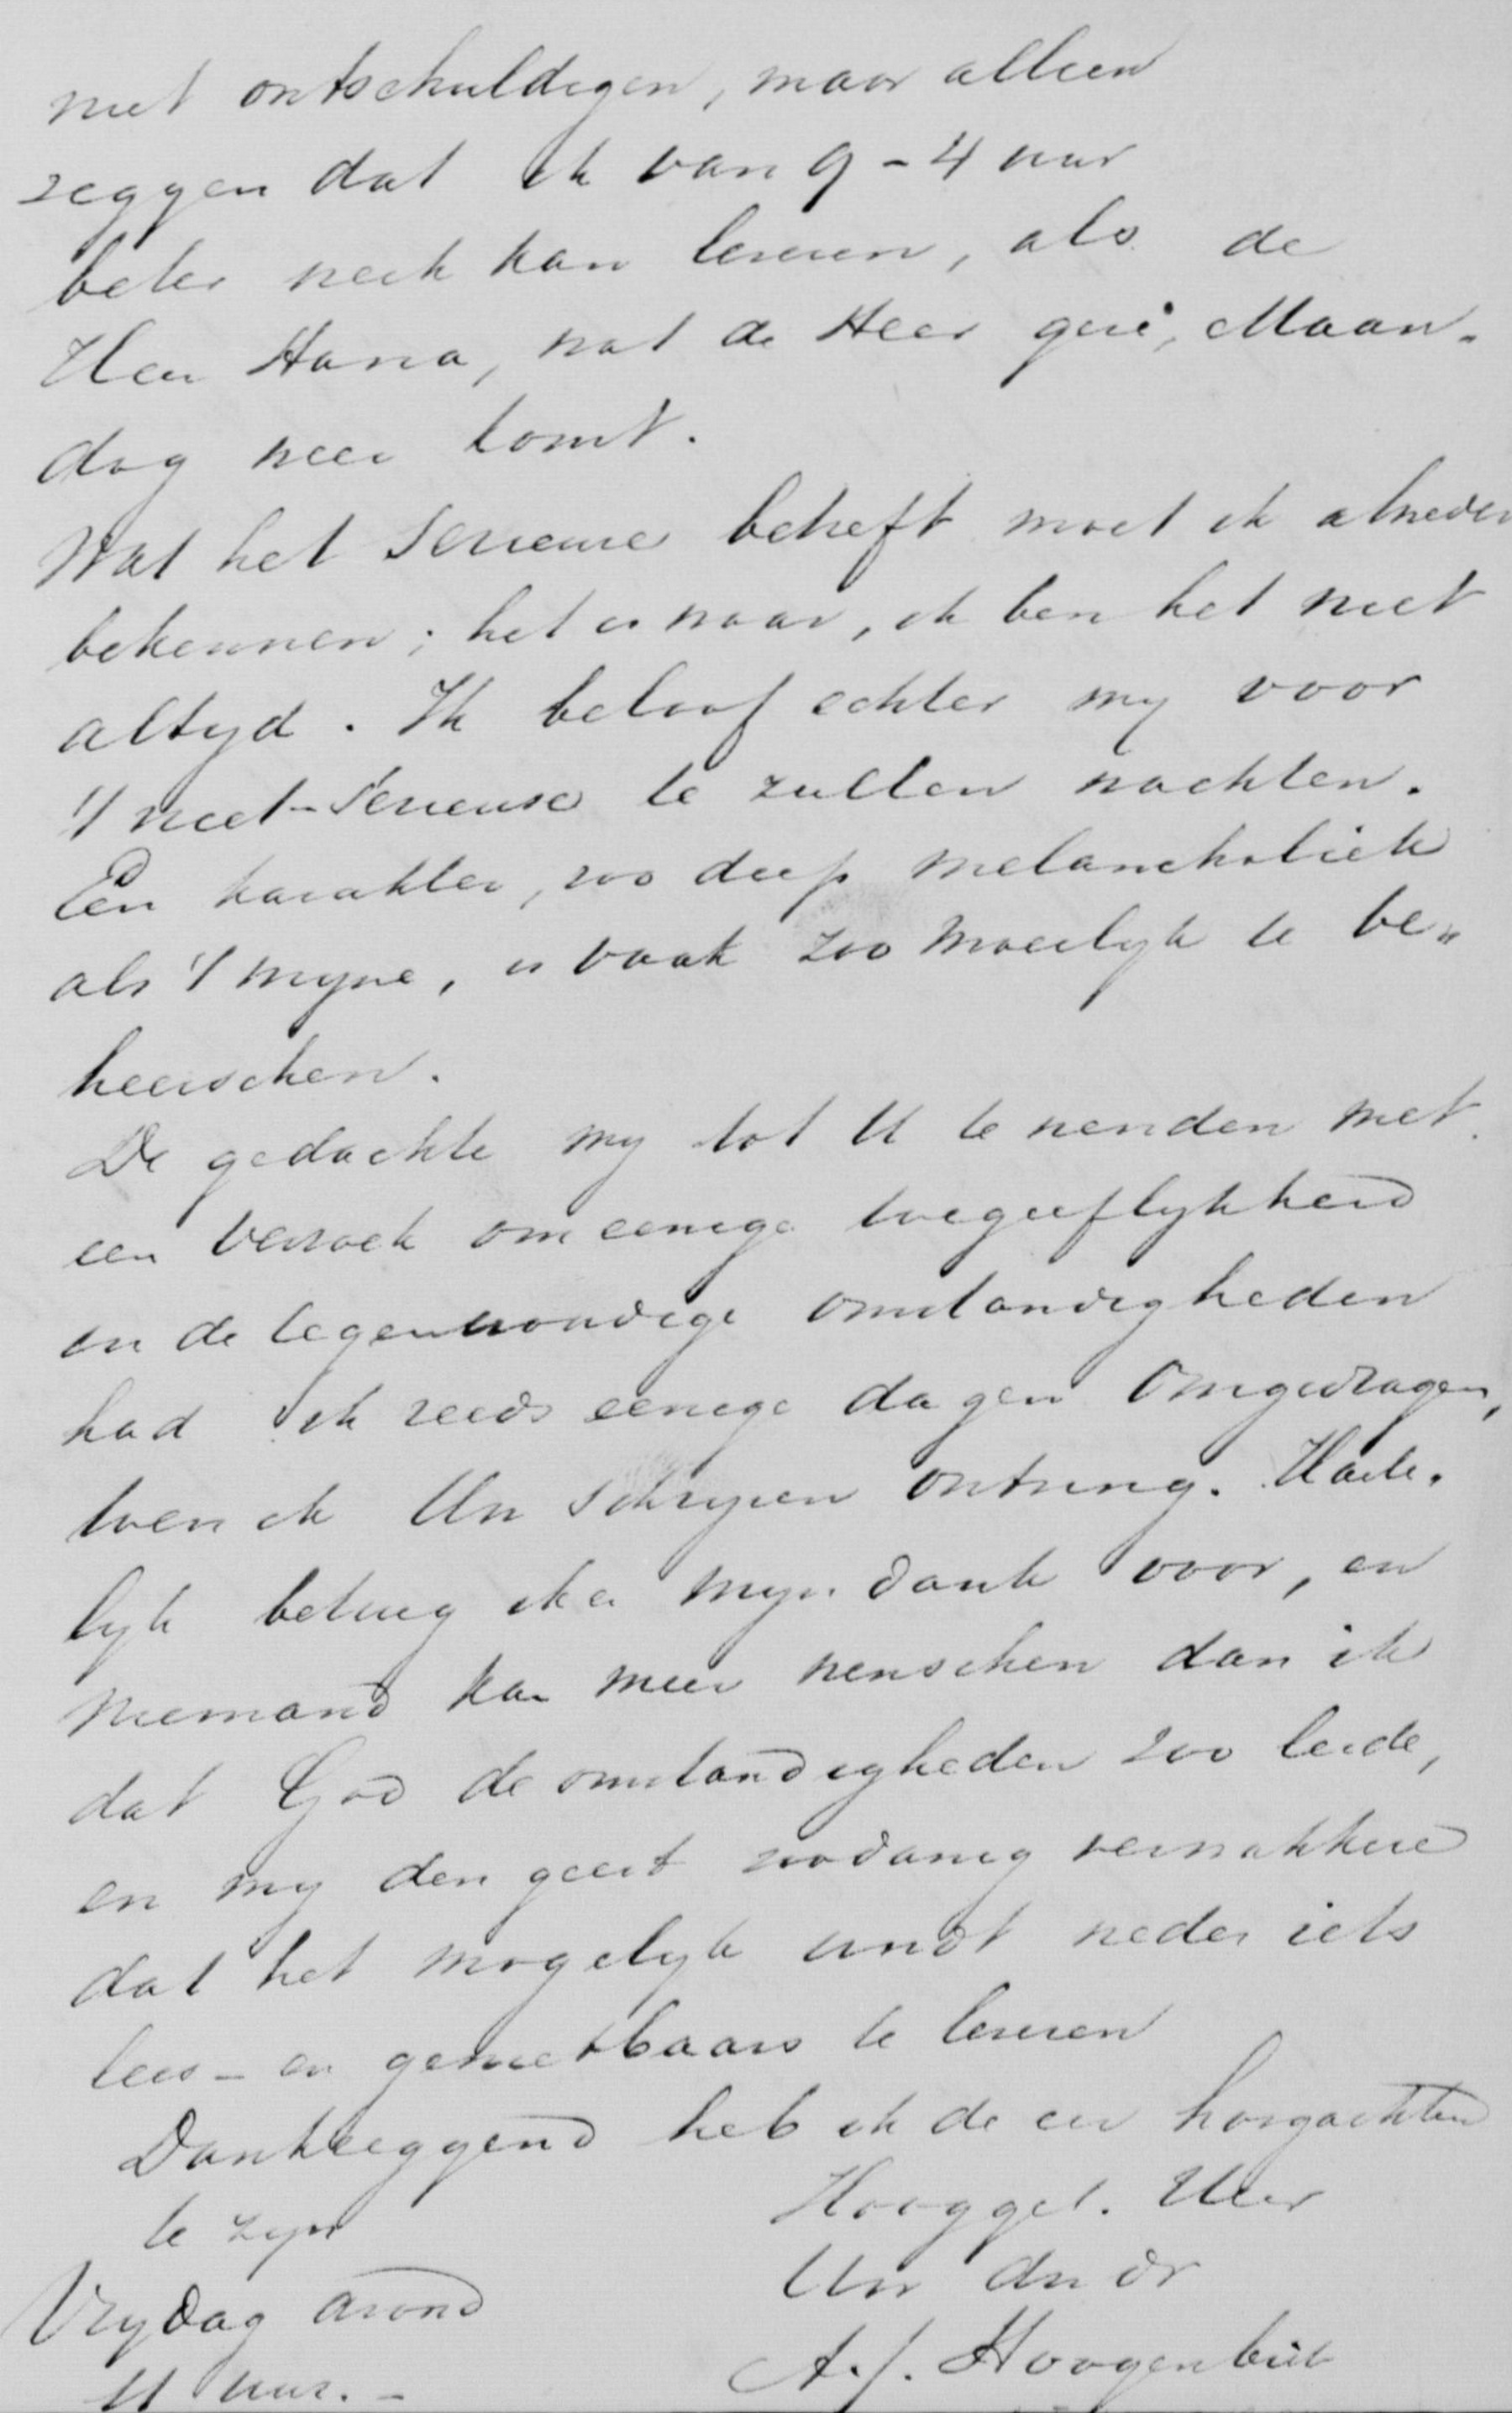 niet ontschuldigen, maar alleen
zeggen dat ik van 9 - 4 uur
beter werk kan leveren, als de
Heer Hana, wat de Heer geve, Maan-
dag weer komt.
Wat het Serieuse betreft moet ik alweder
bekennen; het is waar, ik ben het niet
altyd. Ik beloof echter my voor
't niet-Serieuse te zullen wachten.
Een karakter, zoo diep melancholiek
als 't myne, is vaak zoo moeilyk te be-
heerschen.
De gedachte my tot U te wenden met
een verzoek om eenige toegeeflykheid
in de tegenwoordige omstandigheden
had ik reeds eenige dagen omgedragen,
toen ik Uw schryven ontving. Harte-
lyk betuig ik er myn dank voor, en
niemand kan meer wenschen dan ik
dat God de omstandigheden zoo leide,
en my den geest zoodanig verwakkere
dat het mogelyk wordt weder iets
lees- en genietbaars te leveren
Dankzeggend heb ik de eer hoogachtend
te zyn
Hooggel. Heer
Uw dw dr
A.J. Hoogenbirk
Vrydag avond
11 uur. -